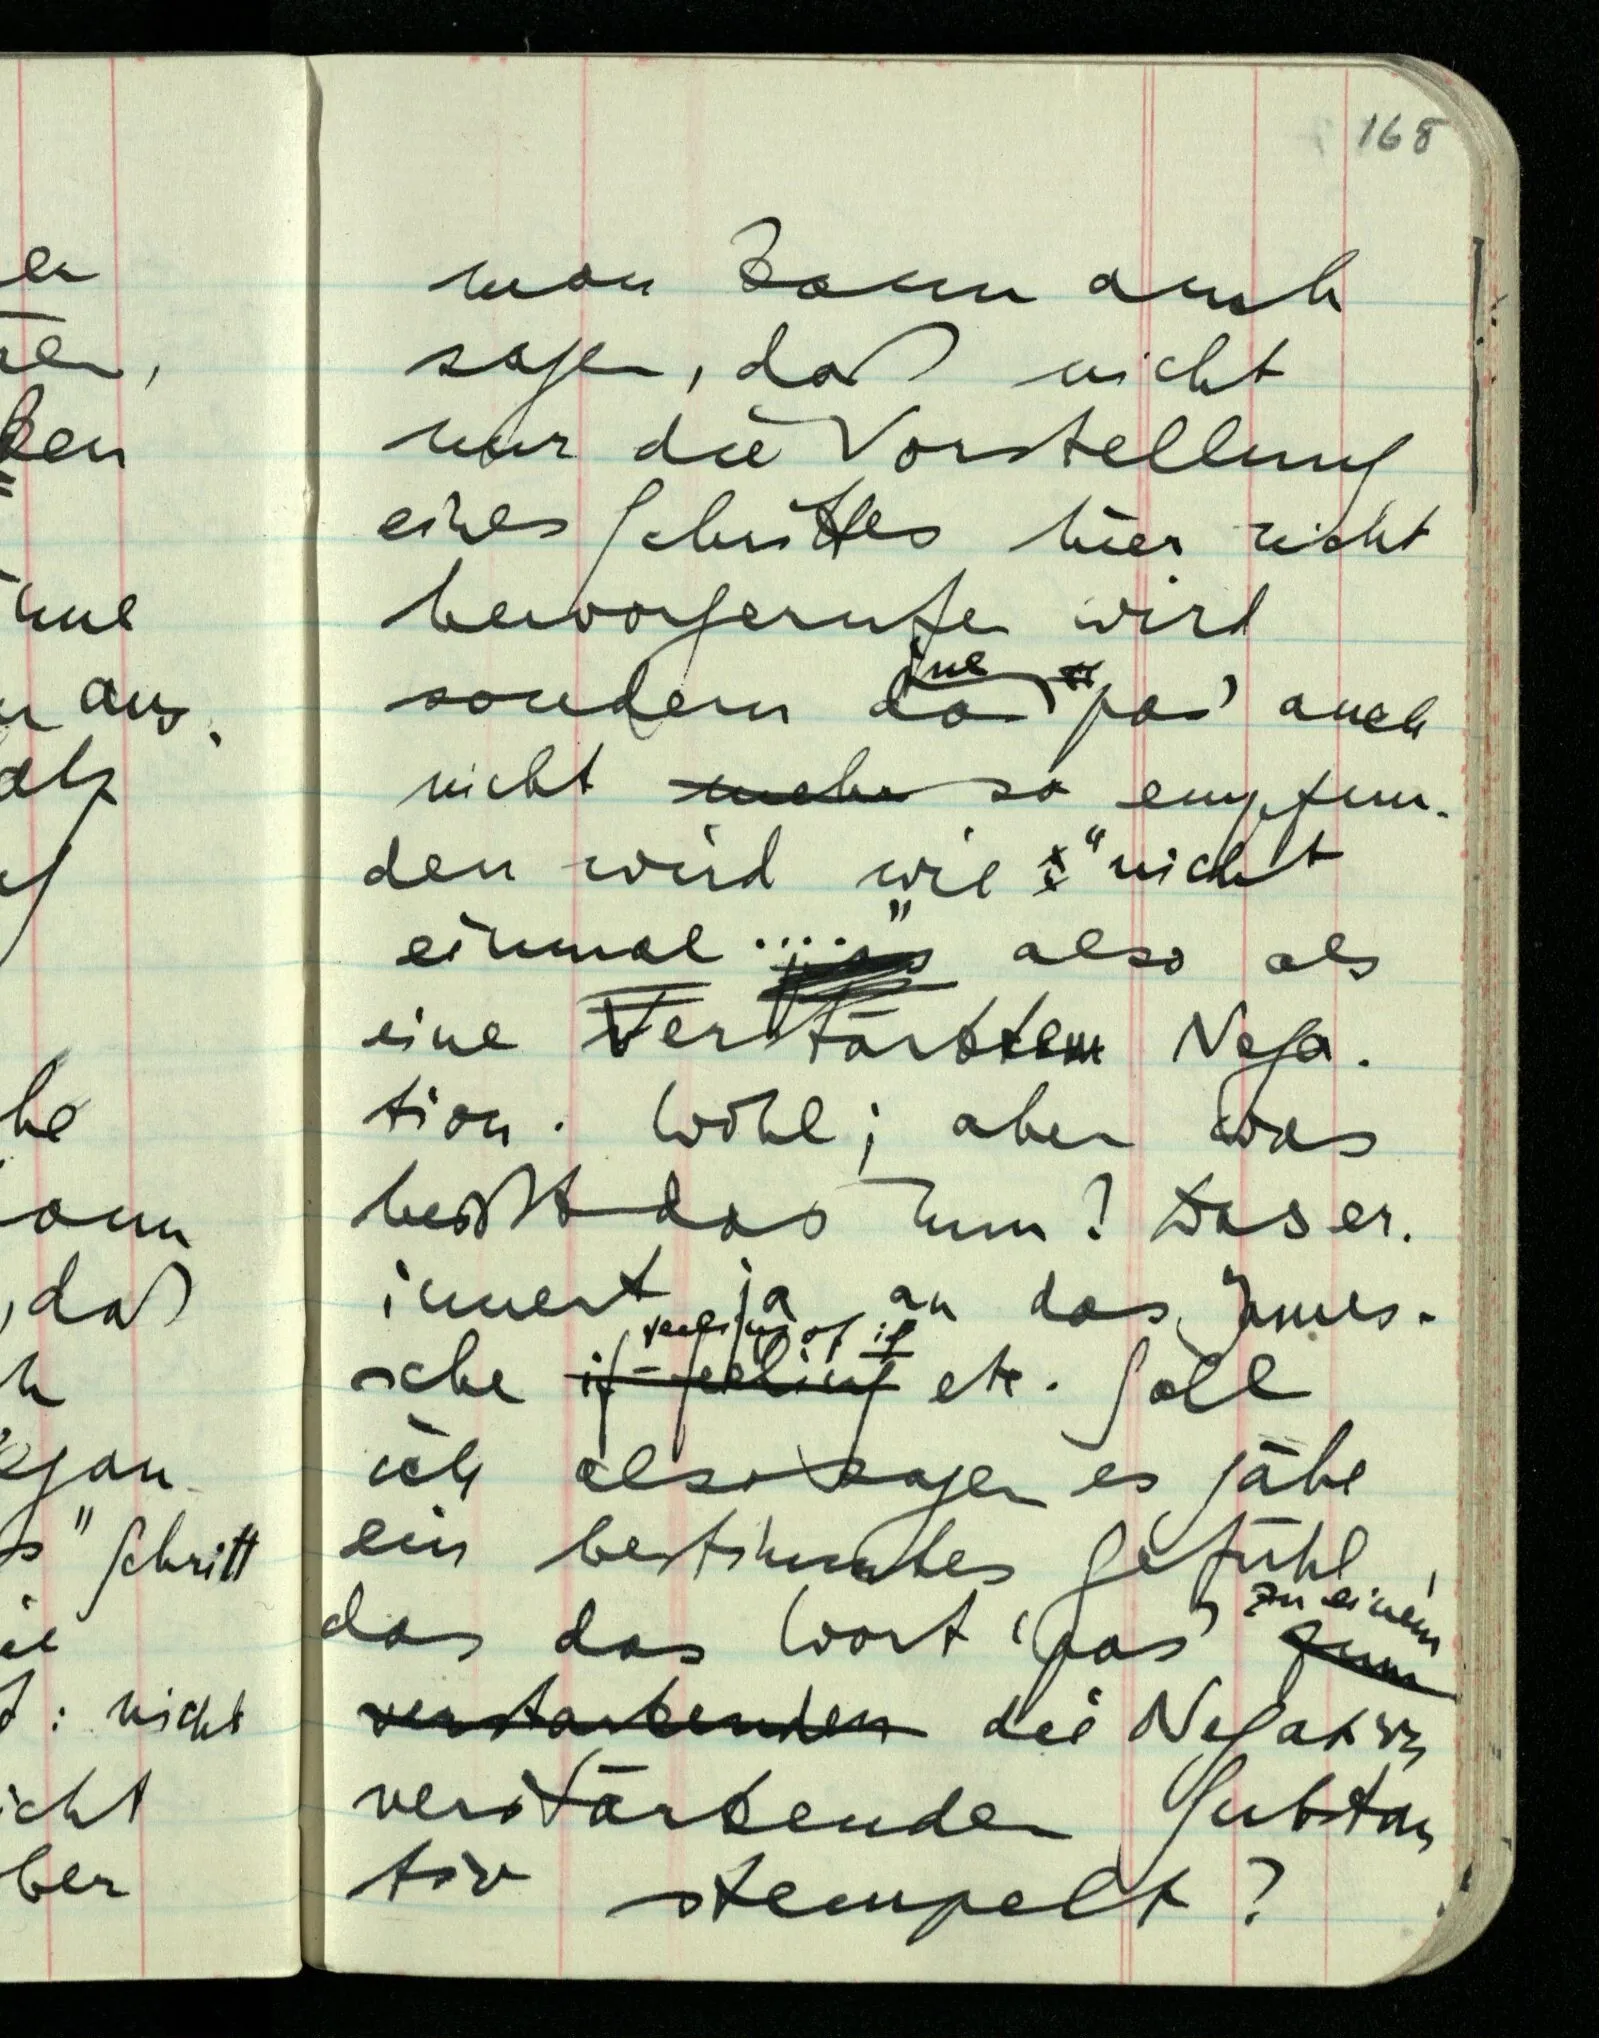 168
man kann auch
sagen, daß nicht
nur die Vorstellung
eines Schrittes hier nicht
hervorgerufen wird
sondern das 'pas' auch
nicht mehr so empfun-
den wird wie "nicht
einmal ...." also als
eine Verstärkte Nega-
tion. Wohl; aber was
heißt das nun? Das er-
innert ja an das James-
feeling of if
sche if-feeling etc. Soll
ich also sagen es gäbe
ein bestimmtes Gefühl,
zu einem
das das Wort 'pas' zum
verstärkenden die Negation
verstärkenden Substan
tiv stempelt?
er
ken
aus.
als
kann
, daß
" Schritt
: nicht